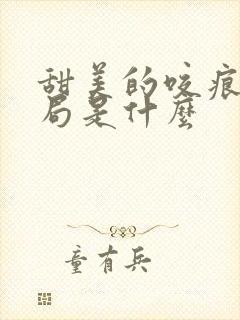 甜美的咬痕
局是什麼
童有兵